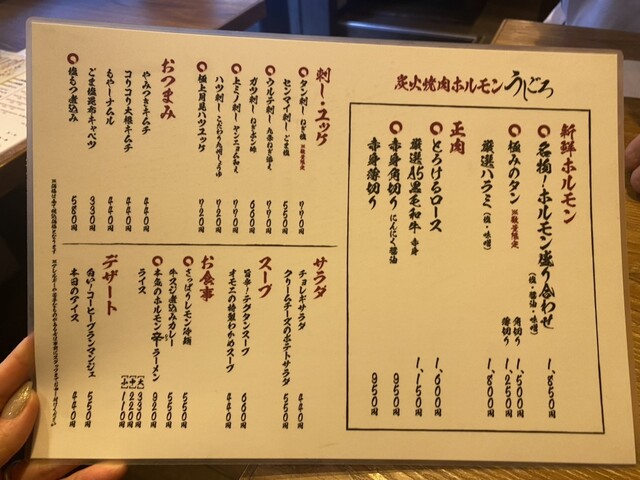 炭火焼肉ホルモン うしごろ
新鮮ホルモン
名物！ホルモン盛り合わせ（塩・醤油・味噌） 1,850円
極みのタン ※数量限定 角切り 1,500円
薄切り 1,250円
厳選ハラミ（塩・味噌） 1,800円
正肉
とろけるロース 1,600円
厳選A5黒毛和牛 赤身 1,150円
赤身角切り にんにく醤油 950円
赤身薄切り 950円
刺し・ユッケ
タン刺し ねぎ塩 ※数量限定 770円
センマイ刺し ごま塩 550円
ウルテ刺し 九条ねぎ添え 770円
ガツ刺し ねぎポン酢 660円
上ミノ刺し ヤンニョム和え 770円
ハツ刺し こだわり九州しょうゆ 720円
極上月見ハツユッケ 720円
おつまみ
やみつきキムチ 440円
コリコリ大根キムチ 440円
もやしナムル 440円
ごま塩昆布キャベツ 390円
塩もつ煮込み 580円
サラダ
チョレギサラダ 440円
クリームチーズのポテトサラダ 550円
スープ
旨辛！テグタンスープ 660円
オモニの特製わかめスープ 440円
お食事
さっぱりレモン冷麺 550円
牛スジ煮込みカレー 550円
本気のホルモン辛ラーメン 920円
ライス 【大】330円
【中】220円
【小】110円
デザート
白い！コーヒーブランマンジェ 550円
本日のアイス 440円